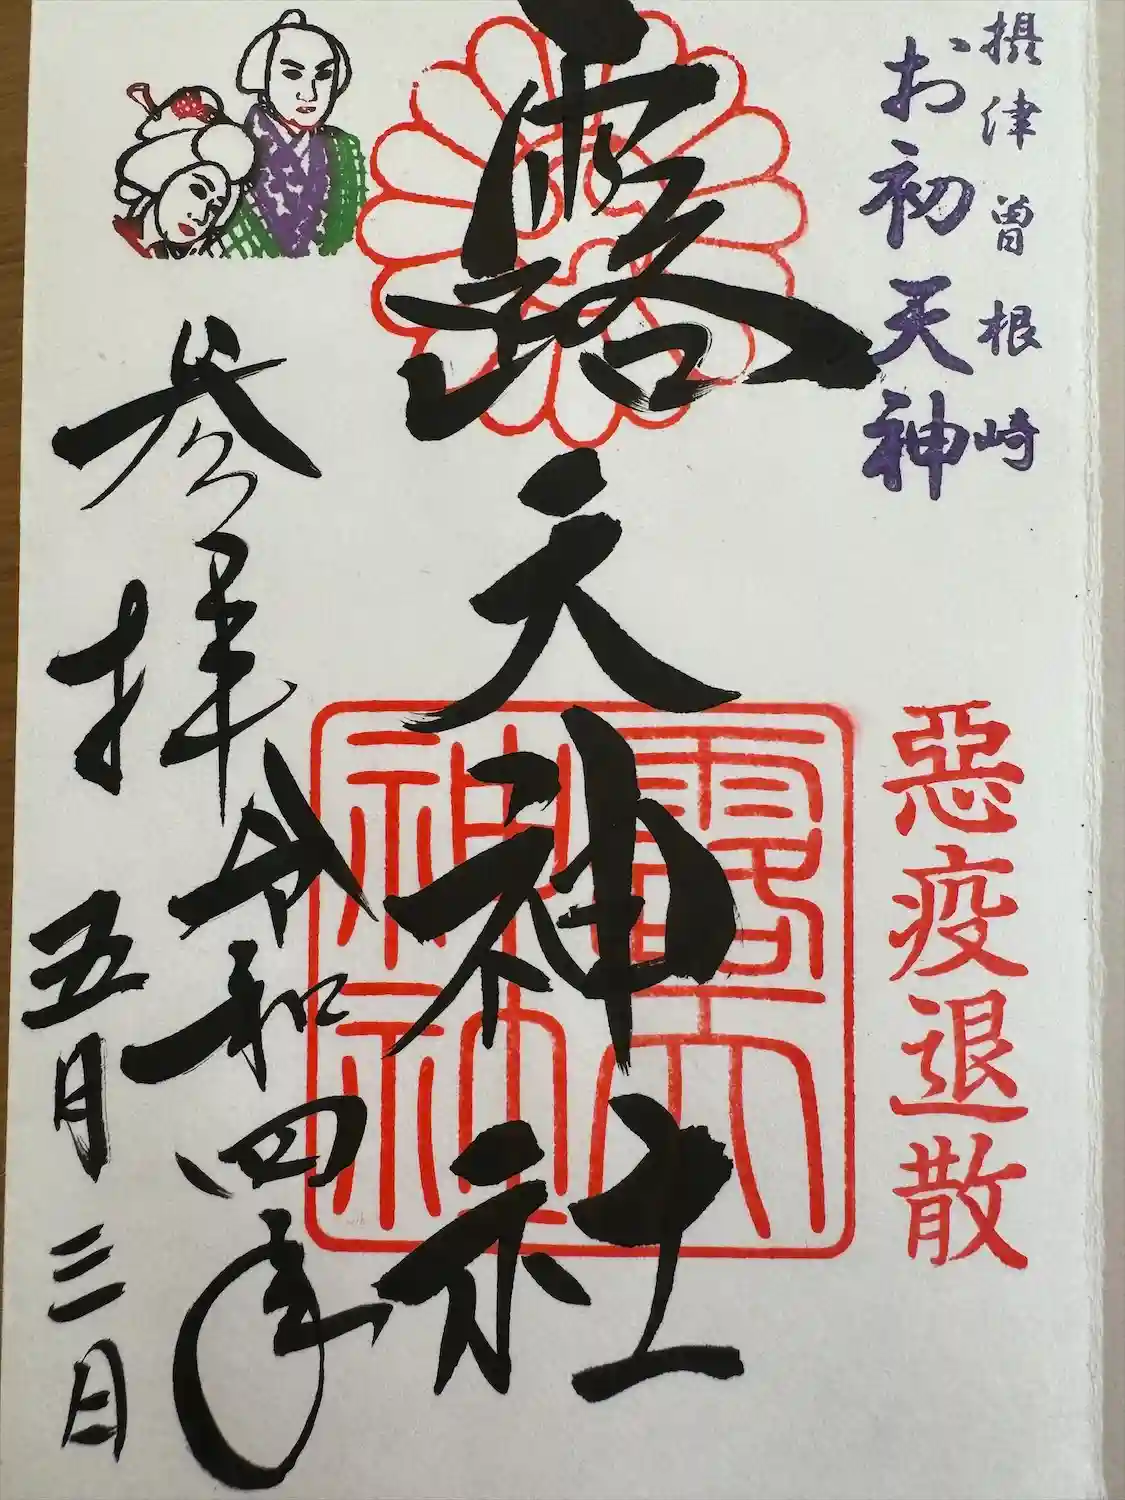 摂津曽根崎
お初天神
惡疫退散
露天神社
露天
神社
参拝
令和四年
五月三日